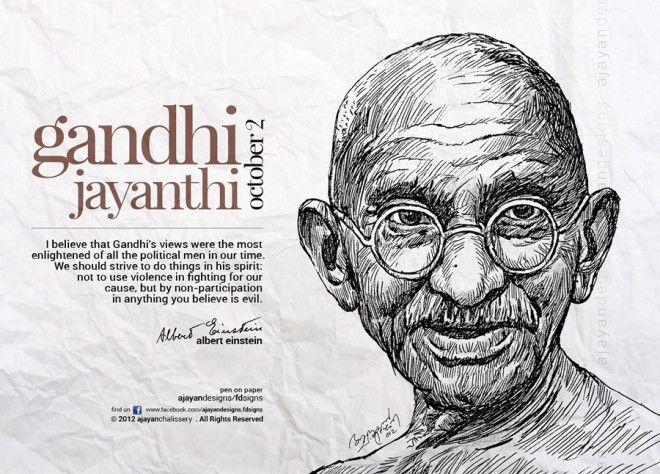 gandhi
jayanthi
october 2
I believe that Gandhi's views were the most
enlightened of all the political men in our time.
We should strive to do things in his spirit:
not to use violence in fighting for our
cause, but by non-participation
in anything you believe is evil.
Albert Einstein
albert einstein
pen on paper
ajayandesigns/fdsigns
find on f www.facebook.com/ajayandesigns.fdsigns
© 2012 ajayanchalissery . All Rights Reserved
ajayandesigns ajayandesigns